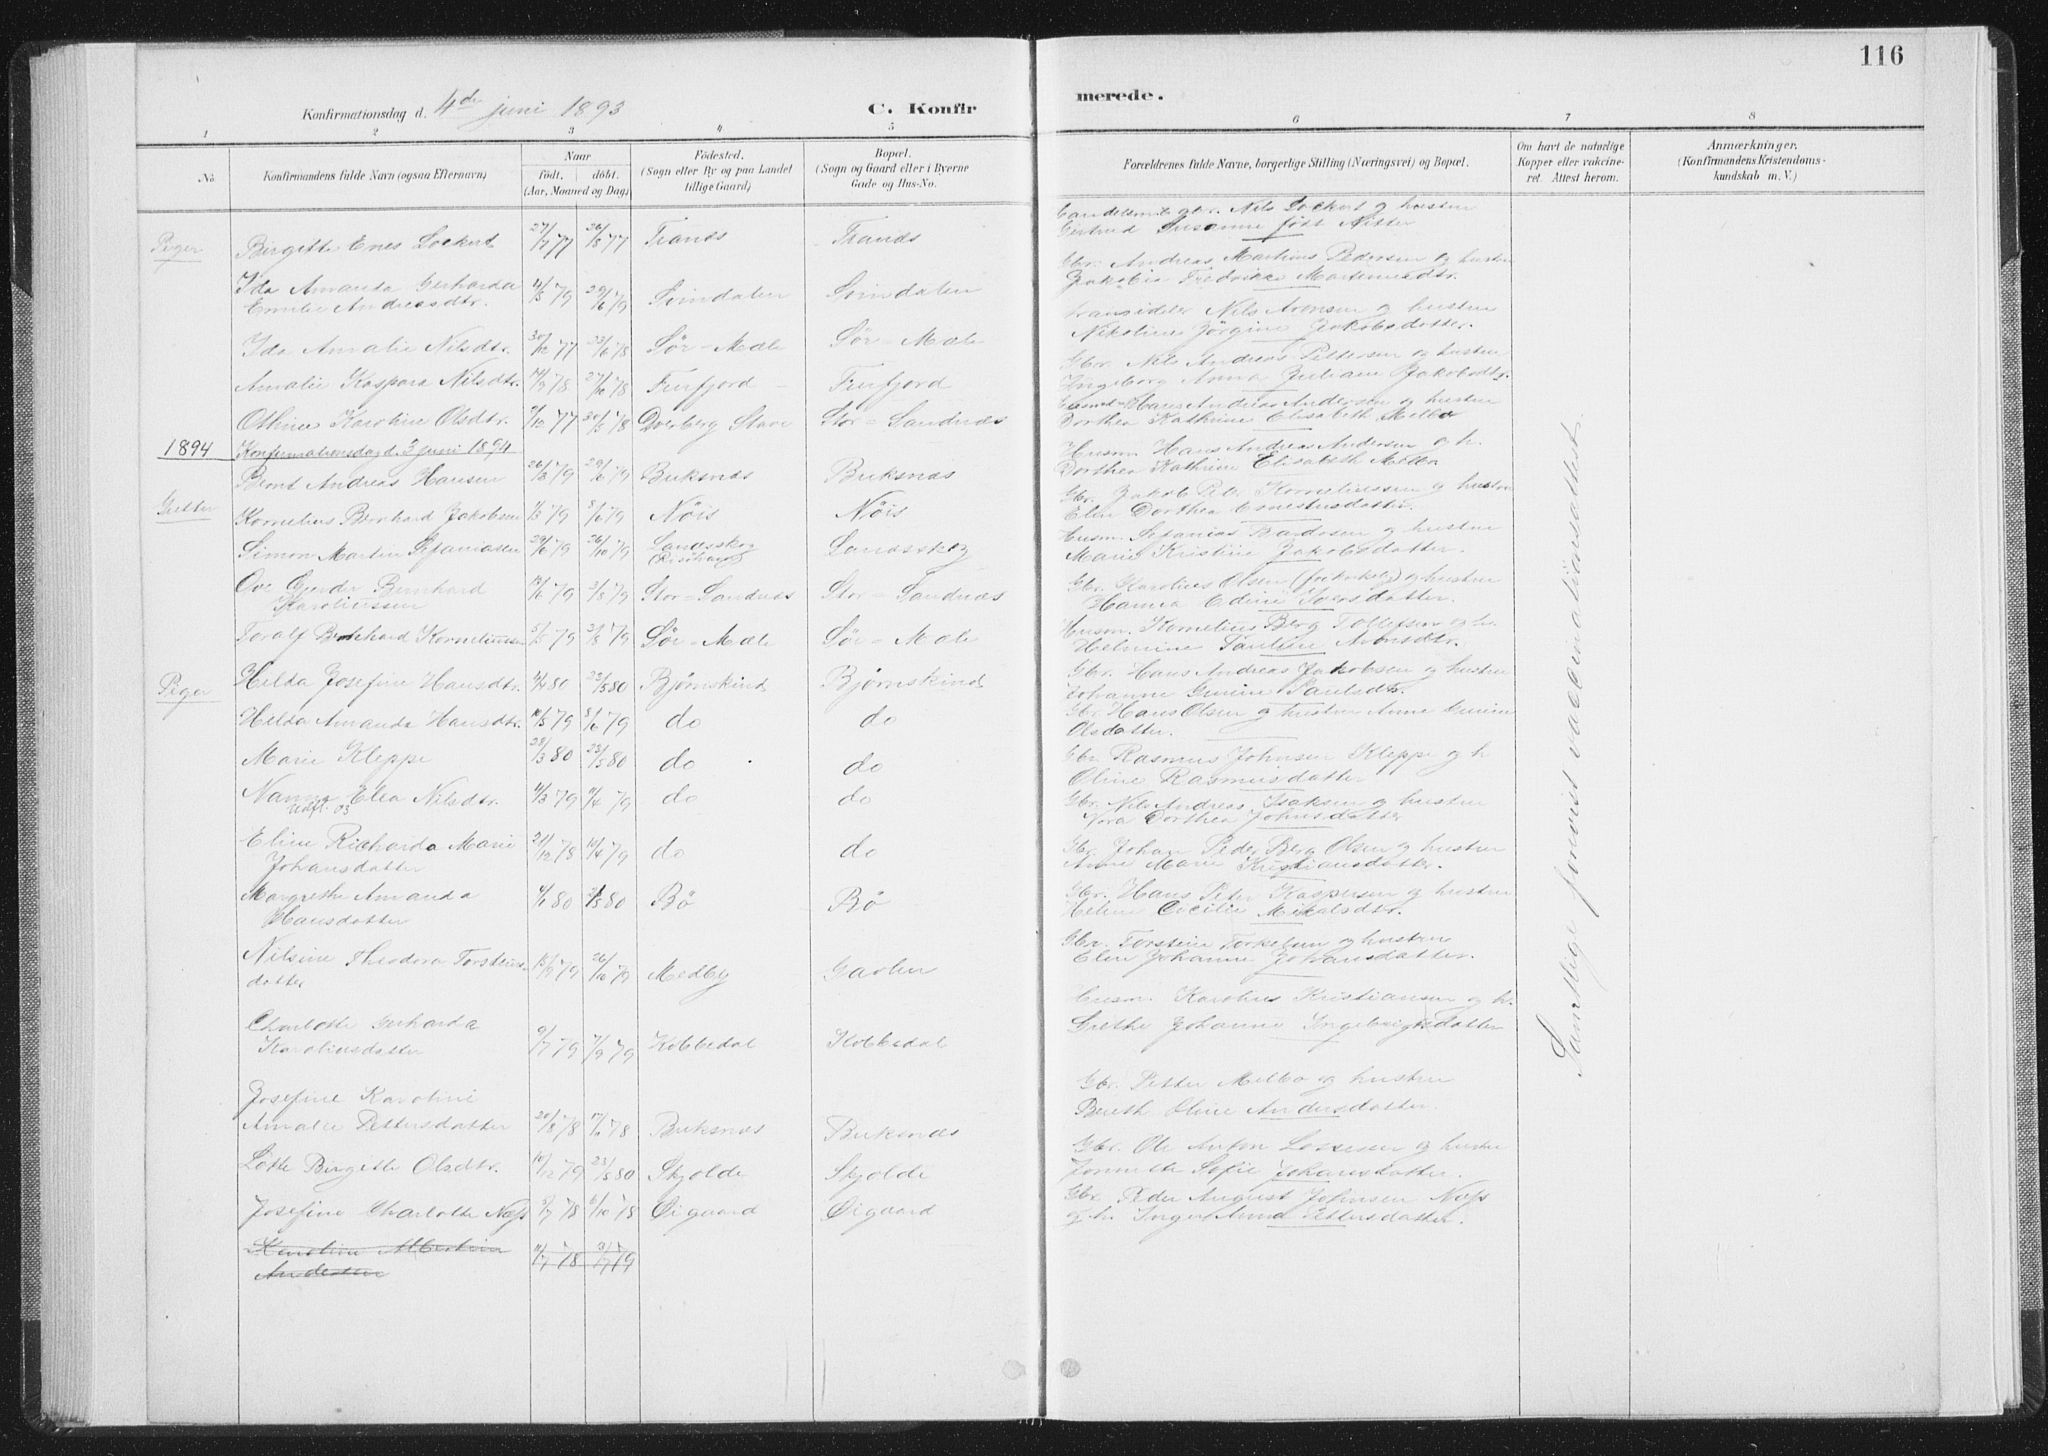 116
Konfirmationsdag d. 4de juni 1893
C. Konfir
merede.
1 2 3 4 5 6 7 8
No.
Konfirmandens fulde Navn (ogsaa Efternavn)
Naar
født. døbt.
(Aar, Maaned og Dag)
Fødested.
(Sogn eller By og paa Landet
tillige Gaard)
Bopæl.
(Sogn og Gaard eller i Byerne
Gade og Hus-No.
Forældrenes fulde Navne, borgerlige Stilling (Næringsvei) og Bopæl.
Om havt de naturlige
Kopper eller vakcine-
ret. Attest herom.
Anmærkninger.
(Konfirmandens Kristendoms-
kundskab m. V.)
Handelsm. & gbr. Nils Lockert og hustru
Piger Birgitte Enes Lockert 27/7 77 26/8 77 Frands Frands Gertrud Susanne født Nitter
Gbr. Andreas Martinus Pedersen og hustru
Ida Amanda Gerharda 4/5 79 29/6 79 Svindalen Svindalen Jakobia Fredrikke Martinusdtr.
Emilie Andreasdtr.
Nils Aronsen og hustru
Ida Amalie Nilsdtr. 30/12 77 23/6 78 Sør-Mæle Sør-Mæle Nikoline Jørgine Jakobsdatter.
Gbr. Nils Andreas Pettersen og hustru
Amalie Kaspara Nilsdtr. 14/9 78 27/10 78 Forfjord Forfjord Ingeborg Anna Juliane Jakobsdtr.
Hans Andreas Andersen og hustru
Othine Karoline Olsdtr. 9/12 77 30/5 78 Dverberg Stave Stor-Sandnæs Dorthea Kathrine Elisabeth Melbo
1894 Konfirmationsdag d. 3 juni 1894
Husm. Hans Andreas Andersen og h.
Bernt Andreas Hansen 26/3 79 29/6 79 Buksnæs Buksnæs Dorthea Kathrine Elisabeth Melbo
Gutter
Gbr. Jakob Peter Korneliussen og hustru
Kornelius Bernhard Jakobsen 1/3 79 8/6 79 Nöis Nöis Elen Dorthea Ernestusdatter.
Husm. Sefanias Bardosen og hustru
Simon Martin Sefaniassen 29/6 79 26/10 79 Landsskog Landsskog Marie Kristine Jakobsdatter.
Gbr. Karolius Olsen og hustru
Ove Bernhard 13/6 79 3/8 79 Stor-Sandnæs Stor-Sandnæs Hanna Edine Iversdatter.
Karoliussen
Husm. Kornelius Berg Tollefsen og h.
Toralf Bernhard Korneliussen 5/5 79 31/8 79 Sør-Mæle Sør-Mæle Helmine Pauline Aronsdtr.
Gbr. Hans Andreas Jakobsen og hustru
Piger Helda Josefine Hansdtr. 4/4 80 23/5 80 Bjørnskind Bjørnskind Johanne Gurine Paulsdtr.
Gbr. Hans Olsen og hustru Anne Gurine
Helda Amanda Hansdtr. 10/5 79 8/6 79 do do Olsdatter.
Marie Kleppe 28/3 80 23/5 80 do do Gbr. Rasmus Johnsen Kleppe og h.
Oline Rasmusdatter
Nanna Elea Nilsdtr. 11/3 79 11/4 79 do do Gbr. Nils Andreas Isaksen og hustru
Udfl. 03
Nora Dorthea Johnsdatter
Eline Richarda Marie 21/12 78 14/4 79 do do Gbr. Johan Peder Berg Olsen og hustru
Johansdatter
Anne Marie Kristiansdatter.
Margrethe Amanda 4/1 80 2/5 80 Bö Bö Gbr. Hans Peter Kaspersen og hustru
Hansdatter
Helene Cecilie Mikalsdtr.
Gbr. Torstein Torkelsen og hustru
Nilsine Theodora Torsteins- 15/9 79 26/10 79 Medby Gavlen Elen Johanne Johansdatter.
datter
Husm. Karolius Kristiansen og h.
Charlotte Gerharda 9/7 79 7/9 79 Kobbedal Kobbedal Grethe Johanne Ingebrigtsdatter
Karoliusdatter
Josefine Karoline
Gbr. Petter Melbo og hustru
Amalie Pettersdatter 20/8 78 17/11 78 Buksnæs Buksnæs Bereth Oline Andersdatter.
Gbr. Ole Anton Lossesen og hustru
Lotte Birgitte Olsdtr. 10/12 79 23/5 80 Skjolde Skjolde Jonnette Sofie Johansdatter.
Gbr. Peder August Johnsen Næss
Josefine Charlotte Næss 5/7 78 6/10 78 Øigaard Øigaard og h. Inger Anna Pettersdatter.
Karoline Albertine 11/7 78
Andersen
Samtlige forevist vaccinationsattest